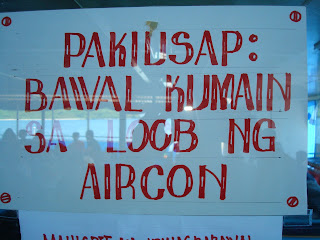 PAKIUSAP:
BAWAL KUMAIN
SA LOOB NG
AIRCON